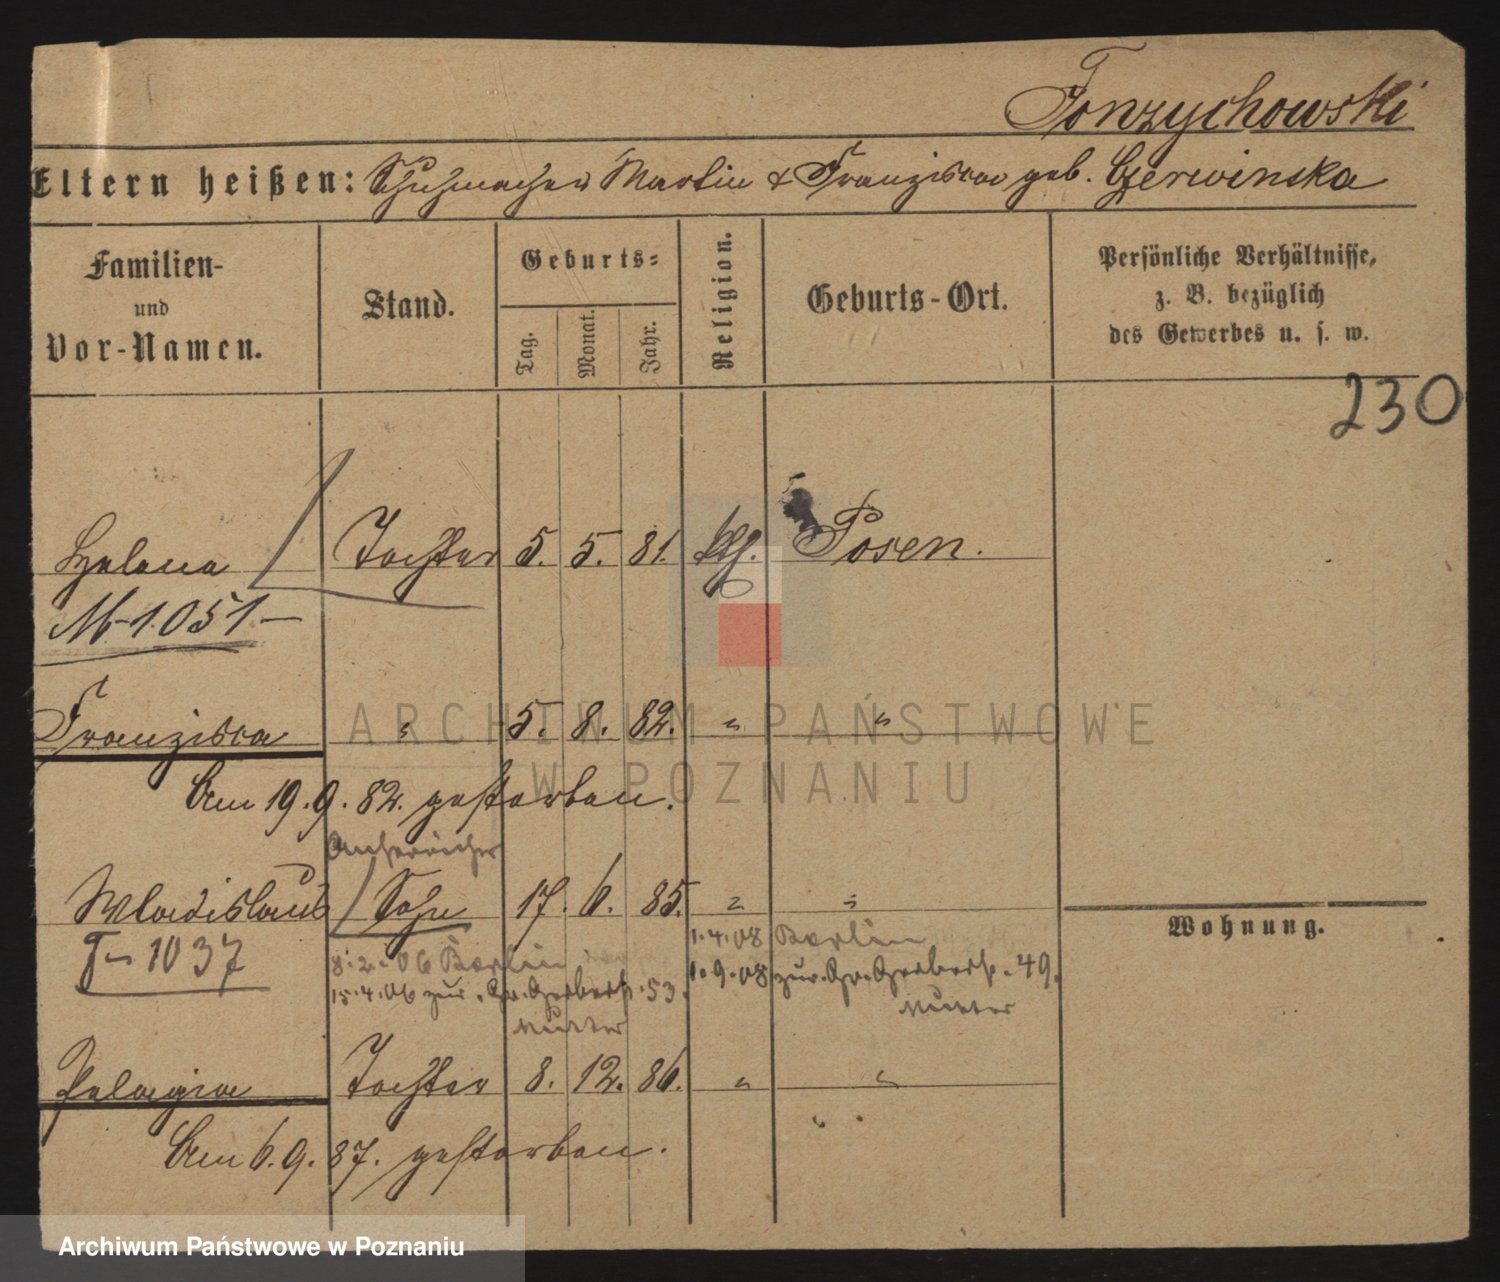 Tonzychowski
Eltern heißen: Schuhmacher Martin & Franziska geb. Czerwinska
Familien-
und
Vor-Namen.
Stand.
Geburts-
Tag.
Monat.
Jahr.
Religion.
Geburts-Ort.
Persönliche Verhältnisse,
z. B. bezüglich
des Gewerbes u. s. w.
230
Helena Tochter 5. 5. 81. kth. Posen.
M-1051.-
Franziska " 5. 8. 82. " "
Am 19.9.82. gestorben.
Wladislaus Sohn 17. 6. 85. " "
T- 1037
8.2.06 Berlin
15.4.06 zur. Gr. Gerberstr. 53.
Mutter
1.4.08 Berlin
1.9.08 zur. Gr. Gerberstr. 49.
Mutter
Wohnung.
Pelagia Tochter 8. 12. 86. " "
Am 6.9.87. gestorben.
ARCHIWUM PAŃSTWOWE
W POZNANIU
Archiwum Państwowe w Poznaniu